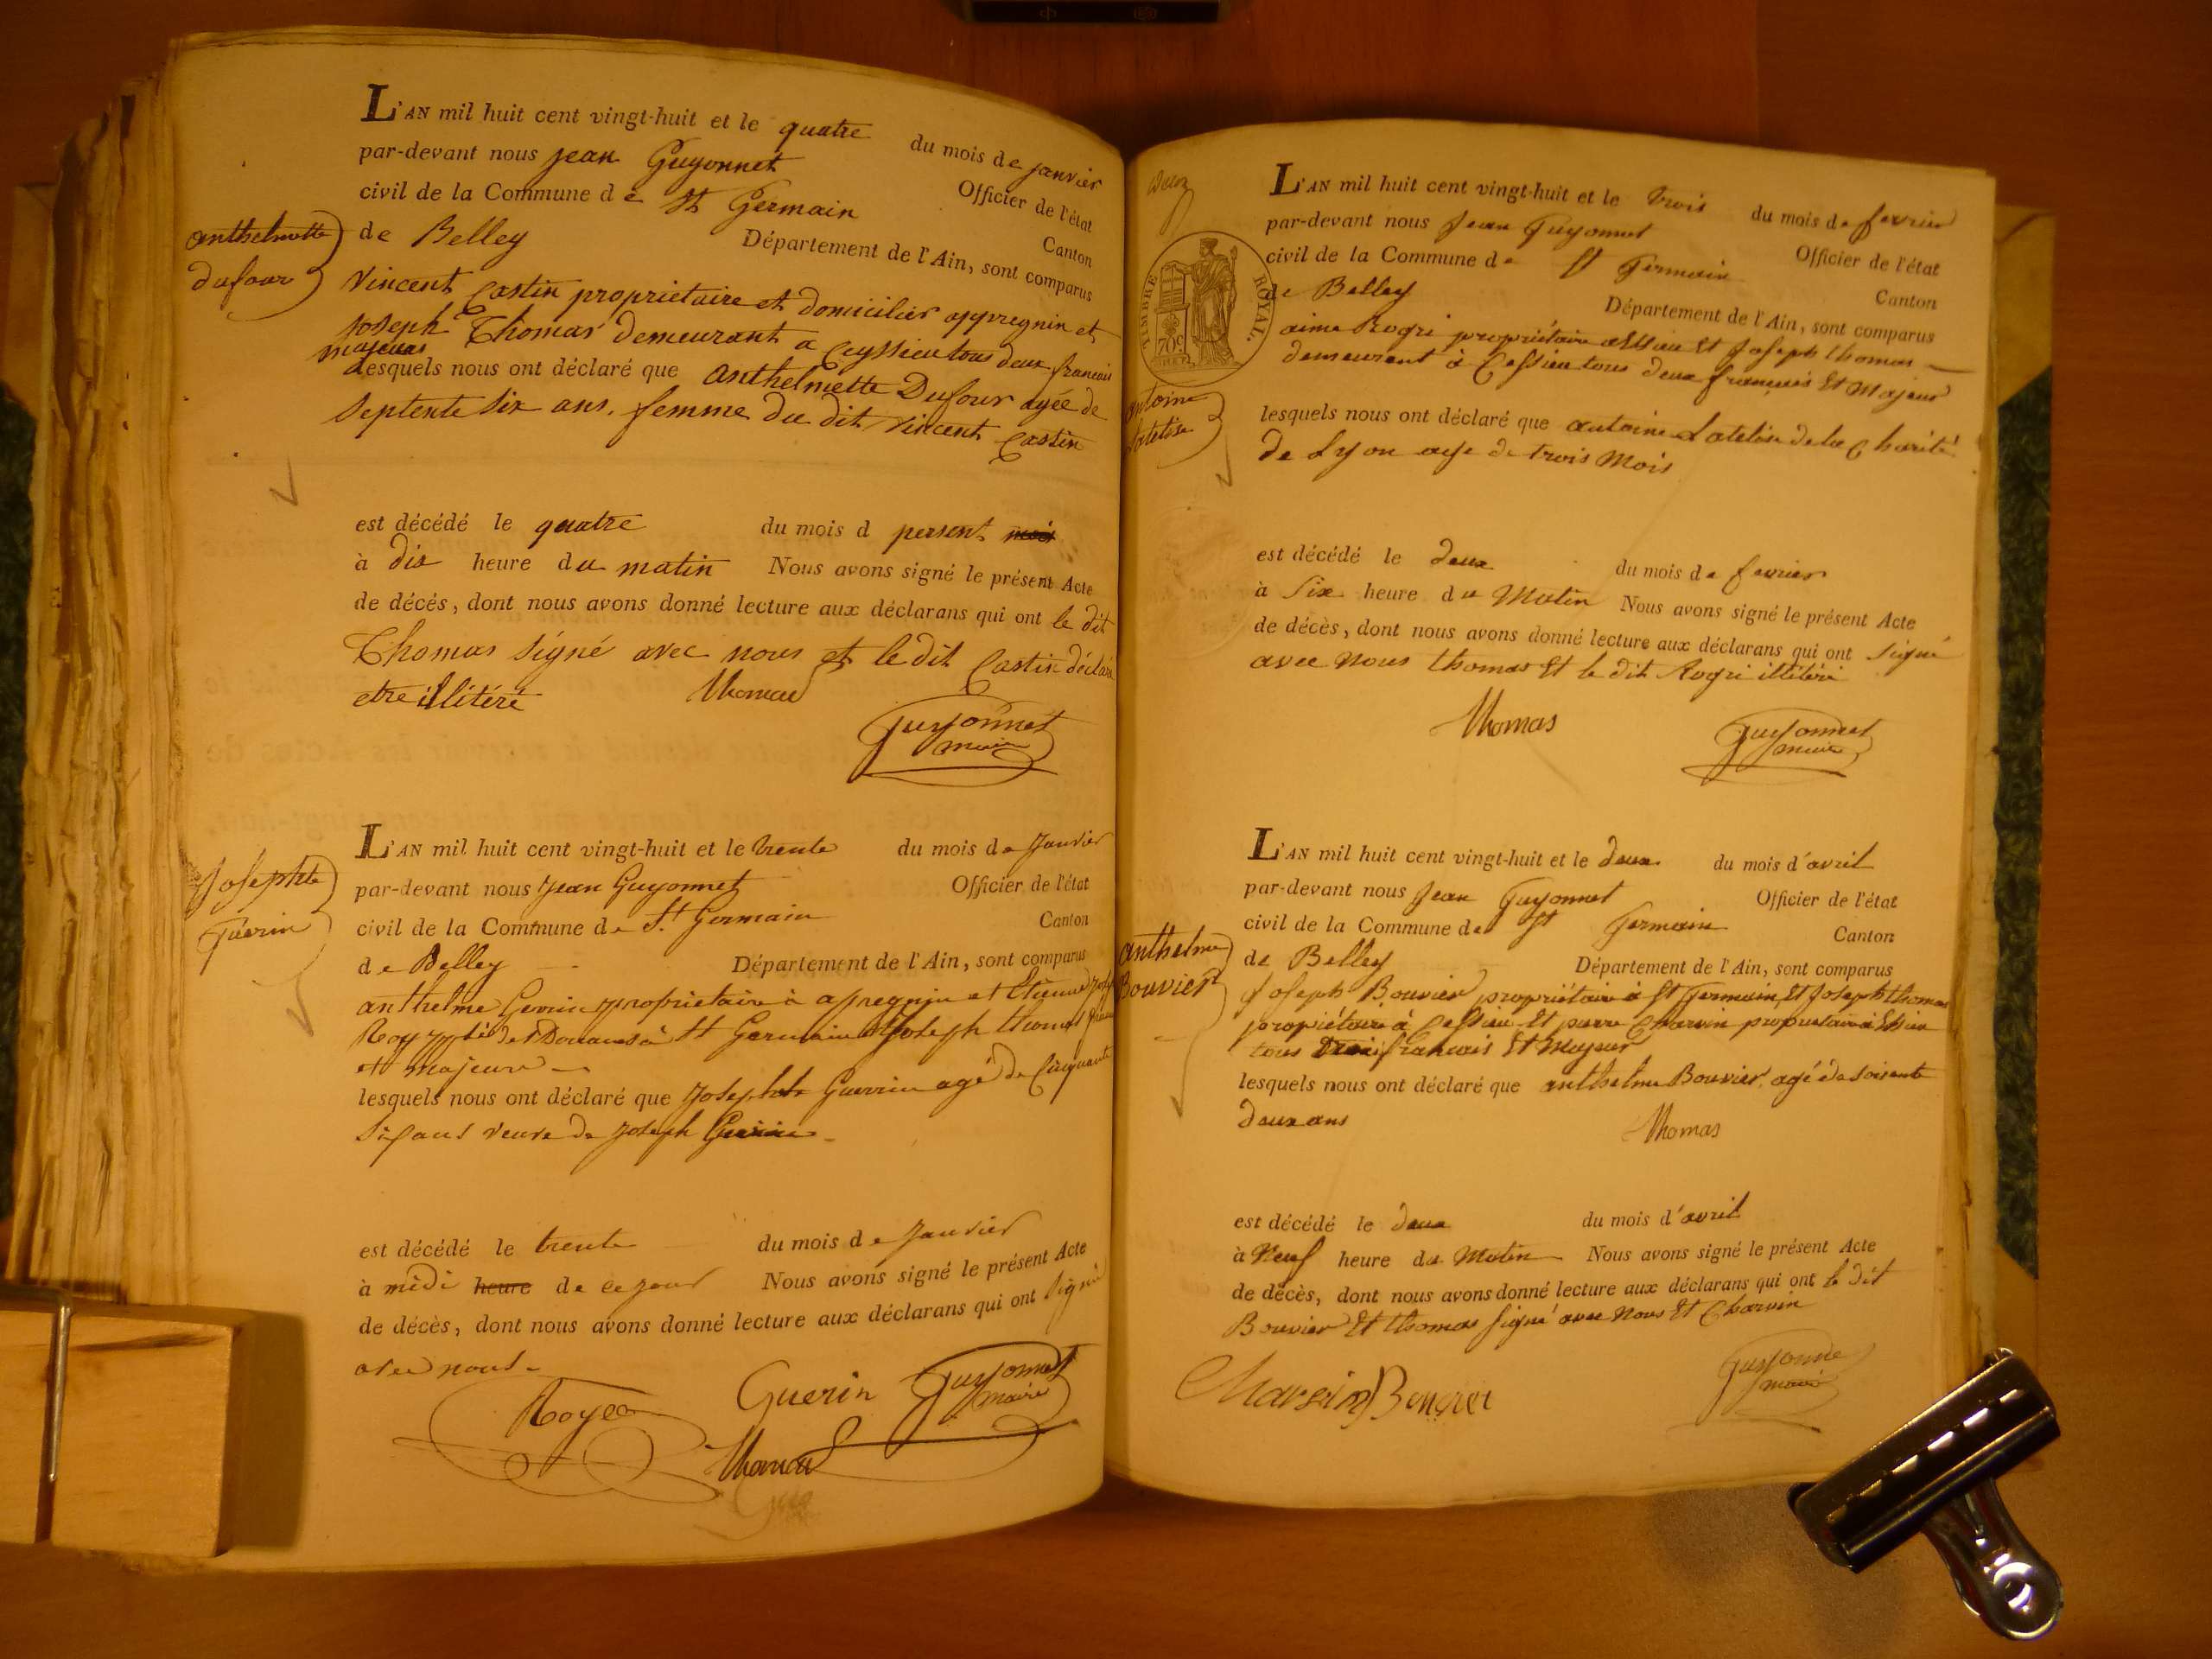 L'AN mil huit cent vingt-huit et le quatre du mois de janvier
par-devant nous jean Guyonnet Officier de l'état
civil de la Commune de St Germain Canton
de Belley Département de l'Ain, sont comparus
anthelmette
dufour
Vincent Castin proprietaire et domicilier appregnin et
Joseph Thomas demeurant a Ceyssieu tous deux francais
majeurs
lesquels nous ont déclaré que anthelmette Dufour agée de
septente six ans. femme du dit Vincent Castin
est décédé le quatre du mois d persent mois
à dix heure du matin Nous avons signé le présent Acte
de décés, dont nous avons donné lecture aux déclarans qui ont le dit
Thomas signé avec nous et le dit Castin déclaré
etre illitéré Thomas
Guyonnet
maire
L'AN mil huit cent vingt-huit et le trente du mois de Janvier
par-devant nous Jean Guyonnet Officier de l'état
civil de la Commune de St Germain Canton
de Belley Département de l'Ain, sont comparus
Josephte
Guerin
anthelme Gerrin proprietaire à apregnin et Etienne
Roy des Douanes à St Germain et Joseph thomas
et majeure
lesquels nous ont déclaré que Josephte Guerrin agé de Cinquante
Six ans veuve de Joseph Guerin
est décédé le trente du mois de Janvier
à midi heure de ce jour Nous avons signé le présent Acte
de décès, dont nous avons donné lecture aux déclarans qui ont signé
avec nous
Royer Guerin Guyonnet
maire
Thomas
Deux
L'AN mil huit cent vingt-huit et le trois du mois de fevrier
par-devant nous Jean Guyonnet Officier de l'état
civil de la Commune de St Germain Canton
de Belley Département de l'Ain, sont comparus
TIMBRE ROYAL.
70c
aime Rogri propriétaire et Joseph thomas
demeurant à Cessieu tous deux français Et Majeur
antoine
Latelise
lesquels nous ont déclaré que antoine Latelise de la Charité
de Lyon age de trois Mois
est décédé le deux du mois de fevrier
à Six heure du Matin Nous avons signé le présent Acte
de décès, dont nous avons donné lecture aux déclarans qui ont signé
avec Nous thomas Et le dit Rogri illitéré
Thomas Guyonnet
maire
L'AN mil huit cent vingt-huit et le deux du mois d'avril
par-devant nous Jean Guyonnet Officier de l'état
civil de la Commune de St Germain Canton
de Belley Département de l'Ain, sont comparus
anthelme
Bouvier
Joseph Bouvier propriétaire à St Germain Et Joseph thomas
propriétaire à Cessieu Et pierre Charvin propriétaire à
tous trois francais Et Majeur
lesquels nous ont déclaré que anthelme Bouvier agé de soisente
deux ans Thomas
est décédé le deux du mois d'avril
à Neuf heure du Matin Nous avons signé le présent Acte
de décès, dont nous avons donné lecture aux déclarans qui ont le dit
Bouvier Et thomas signé avec Nous Et Charvin
Charvin Bouvier Guyonne
maire